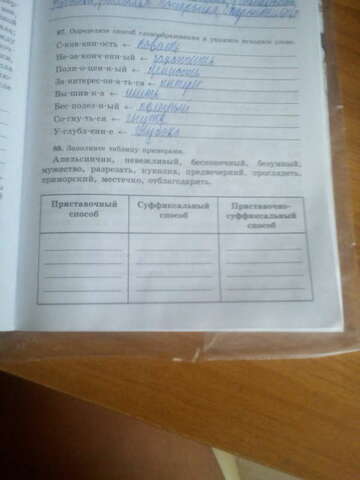 87. Определите способ словообразования и укажите исходное слово.
С-ков-анн-ость ← ковать
Не-за-конч-енн-ый ← закончить
Полн-о-цен-н-ый ←
За-интерес-ов-а-ть-ся ← интерес
Вы-шив-к-а ← шить
Бес-полез-н-ый ←
Со-гну-ть-ся ← гнуть
У-глубл-ени-е ← глубоко
88. Заполните таблицу примерами.
Апельсинчик, невежливый, бесконечный, безумный,
мужество, разрезать, куколка, предвечерний, проглядеть,
приморский, местечко, отблагодарить.
Приставочный способ
Суффиксальный способ
Приставочно-суффиксальный способ